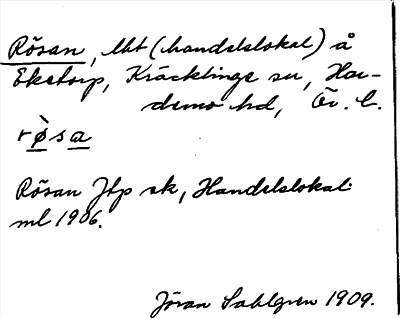 Rösan, lht (handelslokal) å
Ekstorp, Kräcklinge sn, Har-
demo hd, Ör. l.
rø̀sa
Rösan Jtp sk, Handelslokal
ml 1906.
Jöran Sahlgren 1909.